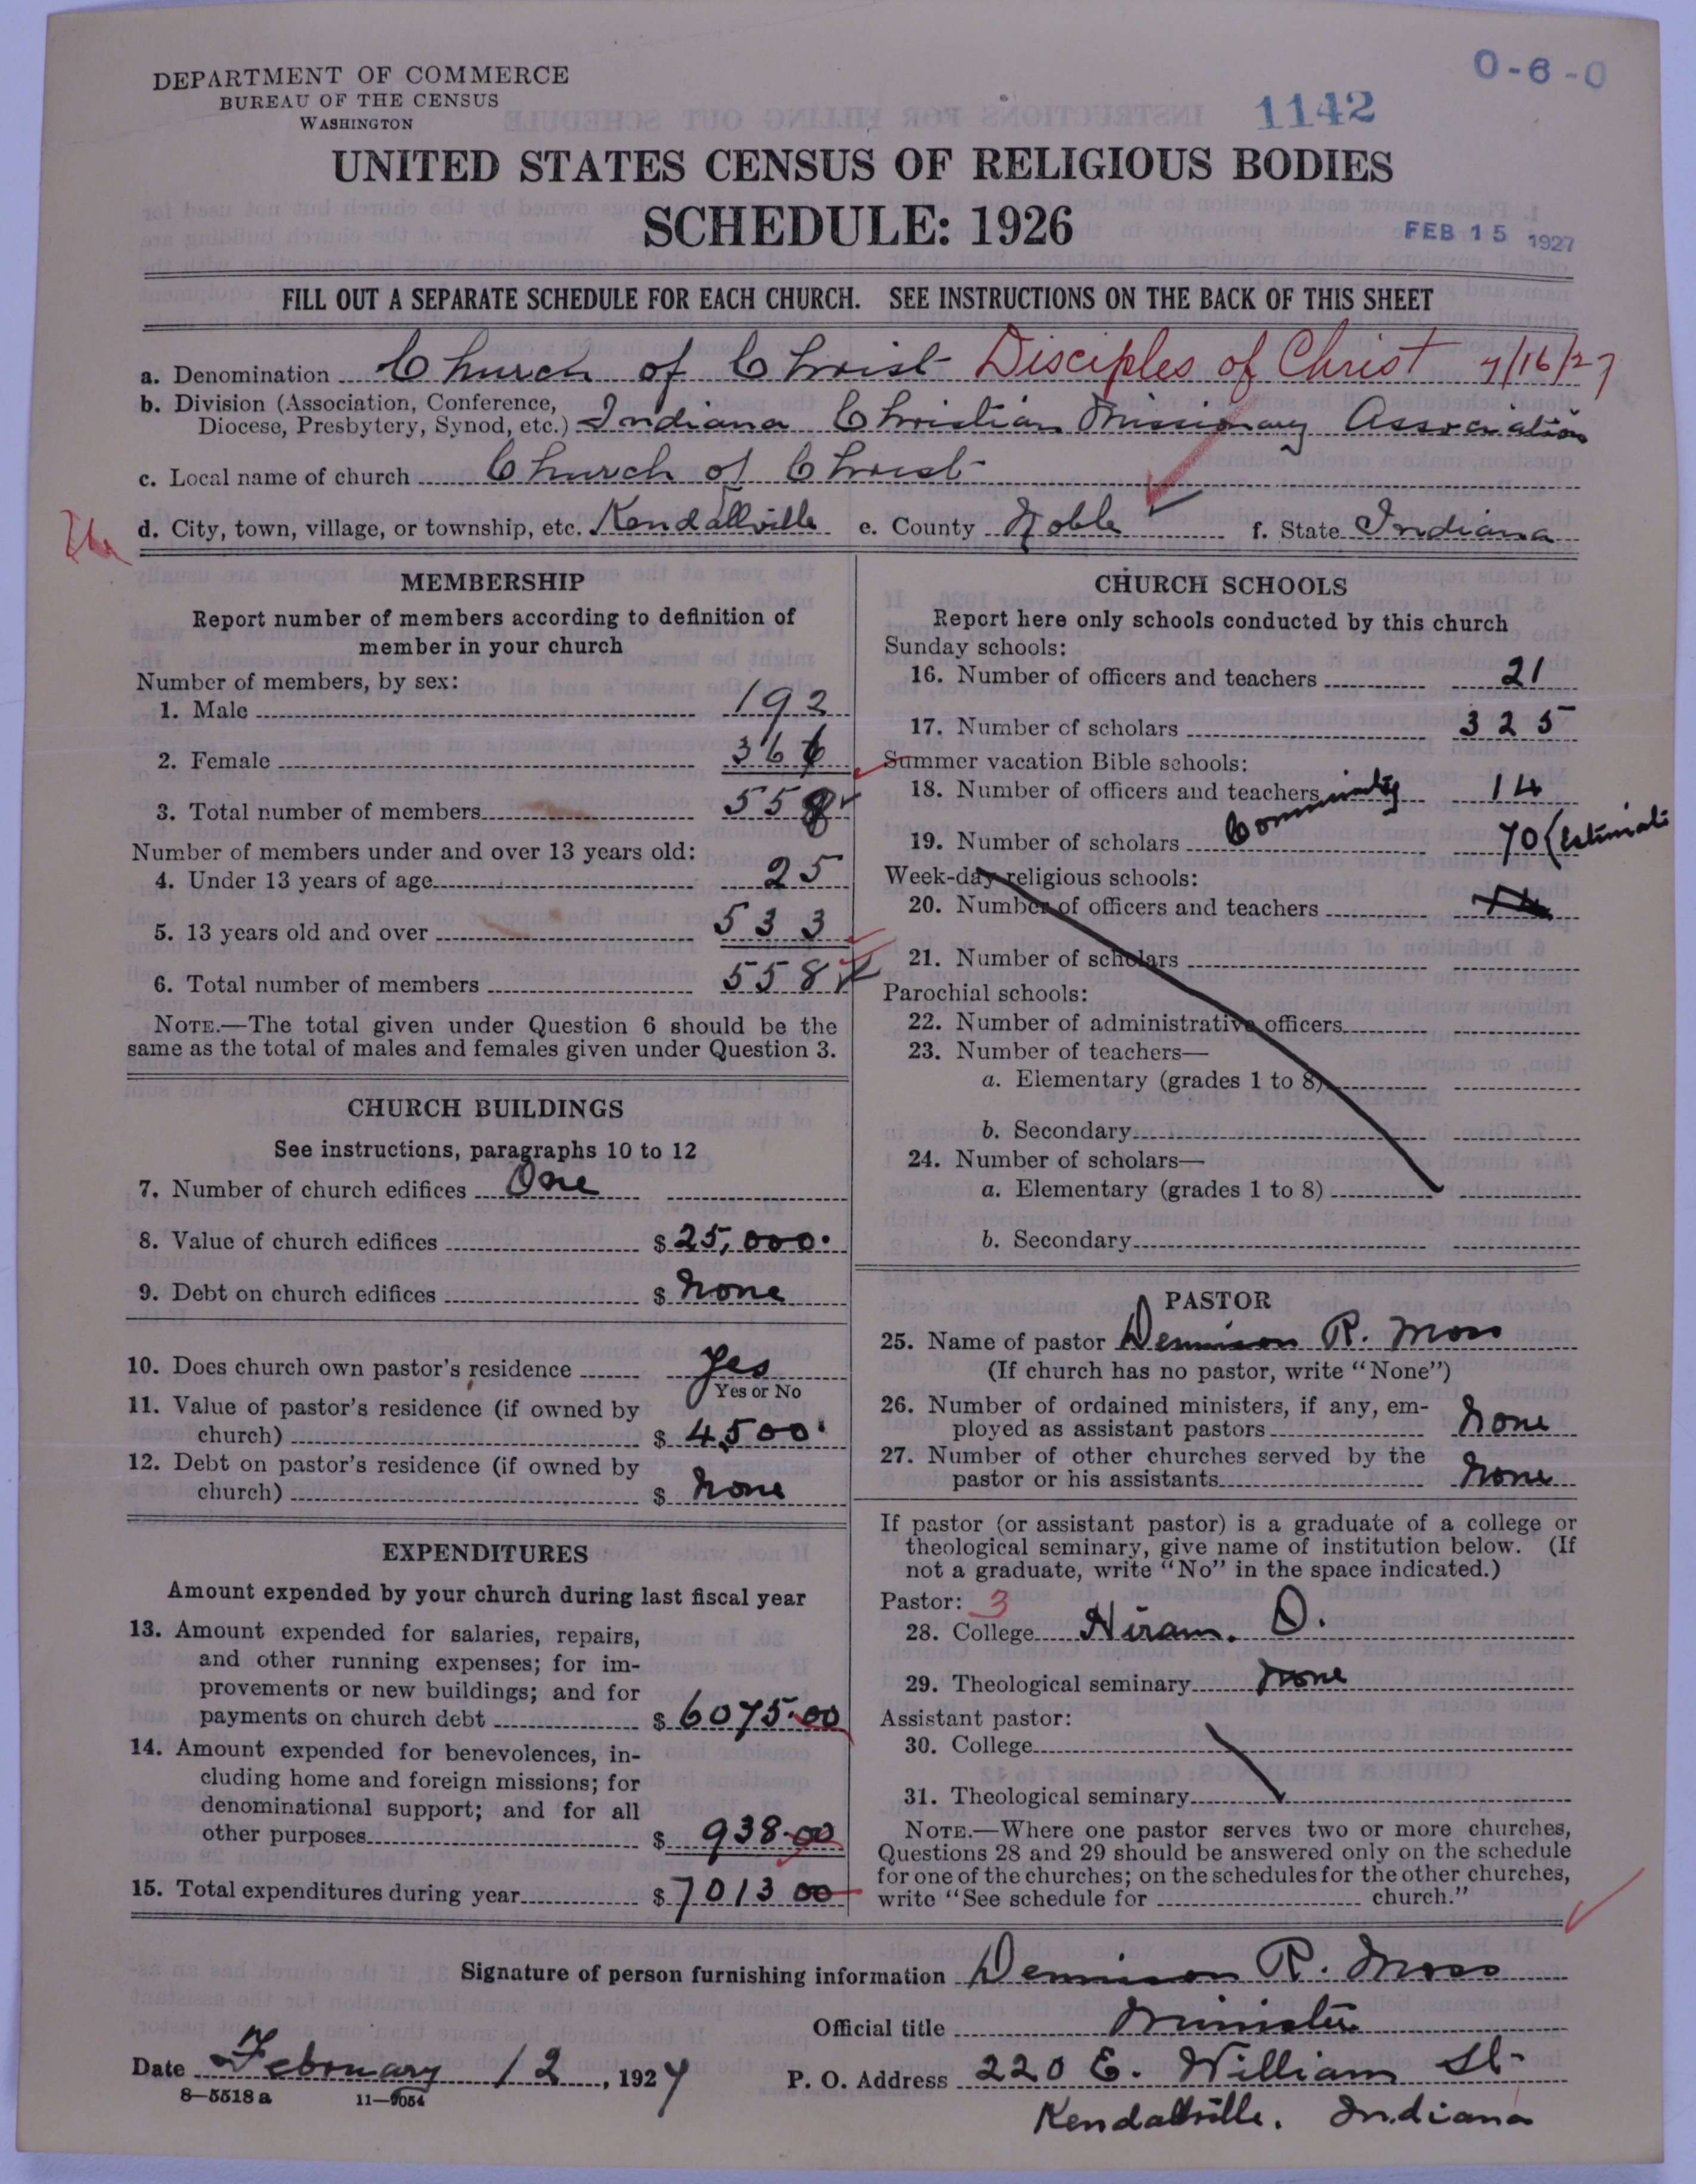 DEPARTMENT OF COMMERCE
BUREAU OF THE CENSUS
WASHINGTON
0-6-0
1142
UNITED STATES CENSUS OF RELIGIOUS BODIES
SCHEDULE: 1926
FEB 15 1927
FILL OUT A SEPARATE SCHEDULE FOR EACH CHURCH. SEE INSTRUCTIONS ON THE BACK OF THIS SHEET
a. Denomination Church of Christ Disciples of Christ 7/16/27
b. Division (Association, Conference,
Diocese, Presbytery, Synod, etc.) Indiana Christian Missionary Association
c. Local name of church Church of Christ
d. City, town, village, or township, etc. Kendallville e. County Noble f. State Indiana
MEMBERSHIP
Report number of members according to definition of
member in your church
Number of members, by sex:
1. Male 192
2. Female 366
3. Total number of members 558
Number of members under and over 13 years old:
4. Under 13 years of age 25
5. 13 years old and over 533
6. Total number of members 558
NOTE.—The total given under Question 6 should be the
same as the total of males and females given under Question 3.
CHURCH BUILDINGS
See instructions, paragraphs 10 to 12
7. Number of church edifices One
8. Value of church edifices $ 25,000.
9. Debt on church edifices $ None
10. Does church own pastor's residence Yes
Yes or No
11. Value of pastor's residence (if owned by
church) $ 4500.
12. Debt on pastor's residence (if owned by
church) $ None
EXPENDITURES
Amount expended by your church during last fiscal year
13. Amount expended for salaries, repairs,
and other running expenses; for im-
provements or new buildings; and for
payments on church debt $ 6075.00
14. Amount expended for benevolences, in-
cluding home and foreign missions; for
denominational support; and for all
other purposes $ 938.00
15. Total expenditures during year $ 7013 00
CHURCH SCHOOLS
Report here only schools conducted by this church
Sunday schools:
16. Number of officers and teachers 21
17. Number of scholars 325
Summer vacation Bible schools:
18. Number of officers and teachers 14
Community
19. Number of scholars 70 (Estimate
Week-day religious schools:
20. Number of officers and teachers
21. Number of scholars
Parochial schools:
22. Number of administrative officers
23. Number of teachers—
a. Elementary (grades 1 to 8)
b. Secondary
24. Number of scholars—
a. Elementary (grades 1 to 8)
b. Secondary
PASTOR
25. Name of pastor Dennison R. Moss
(If church has no pastor, write "None")
26. Number of ordained ministers, if any, em-
ployed as assistant pastors None
27. Number of other churches served by the
pastor or his assistants None
If pastor (or assistant pastor) is a graduate of a college or
theological seminary, give name of institution below. (If
not a graduate, write "No" in the space indicated.)
Pastor: 3
28. College Hiram. O.
29. Theological seminary None
Assistant pastor:
30. College
31. Theological seminary
NOTE.—Where one pastor serves two or more churches,
Questions 28 and 29 should be answered only on the schedule
for one of the churches; on the schedules for the other churches,
write "See schedule for church."
Signature of person furnishing information Dennison R. Moss
Official title Minister
Date February 12, 1927
P. O. Address 220 E. William St
Kendallville. Indiana
8—5518 a 11—9054